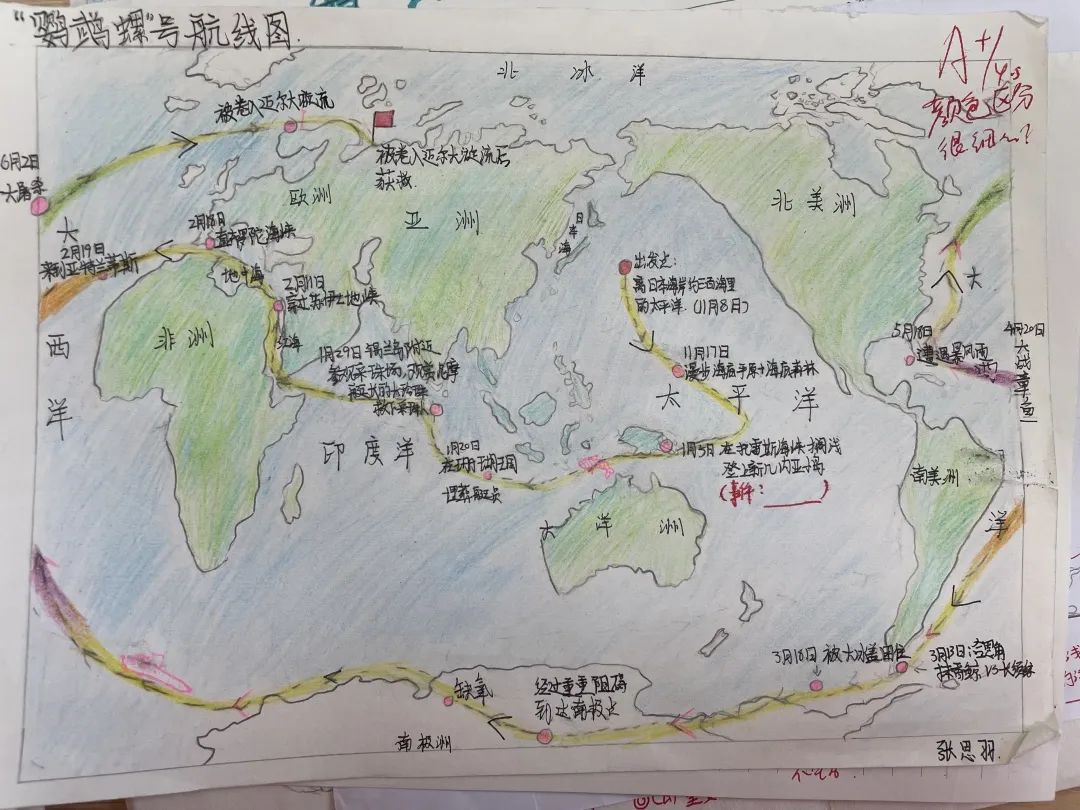 "鹦鹉螺"号航线图.
北 冰 洋
A+/4.5
颜色区分
很细心?
被卷入迈尔大漩流
被卷入迈尔大漩流后
获救.
6月2日
大屠杀
欧洲
亚洲
北美洲
大
西
洋
2月18日
直布罗陀海峡
2月19日
来到亚特兰蒂斯
地中海
2月11日
穿过苏伊士地峡
红海
非洲
日本海
出发点:
离日本海岸约三百海里
的太平洋.(11月8日)
11月17日
漫步海底平原+海底森林
太 平 洋
1月29日 锡兰岛附近
参观采珠场,
印度洋
1月20日
1月5日 在托雷斯海峡搁浅
登上新几内亚岛
(事件?______)
大 洋 洲
大
西
洋
5月18日
遭遇暴风雨
4月20日
大战章鱼
南美洲
3月13日:合恩角
抹香鲸VS长须鲸
3月16日 被大冰盖困住
经过重重阻碍
到达南极点
缺氧
南极洲
张思羽.